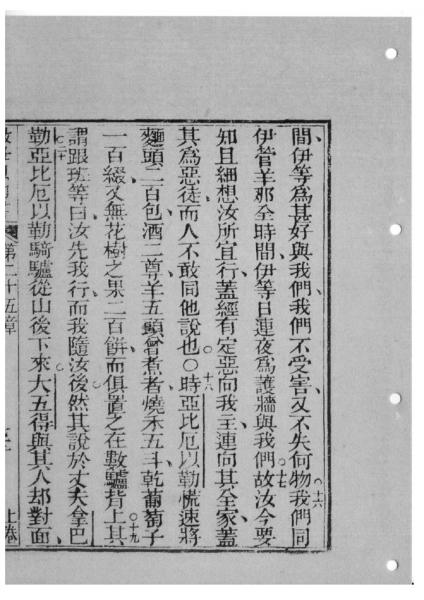 間伊等爲甚好與我們我們不受害又不失何物○十六我們同
伊管羊那全時間伊等日連夜爲護牆與我們○十七故汝今要
知且細想汝所宜行蓋經有定惡向我主連向其全家蓋
其爲惡徒而人不敢同他說也○○十八時亞比厄以勒慌速將
麵頭二百包酒二尊羊五頭曾煮者燒禾五斗乾葡萄子
一百綴又無花樹之果二百餅而俱置之在數驢背上○十九其
謂跟班等曰汝先我行而我隨汝後然其說於丈夫拿巴
勒○二十亞比厄以勒騎驢從山後下來大五得與其人却對面
第二十五章
上卷